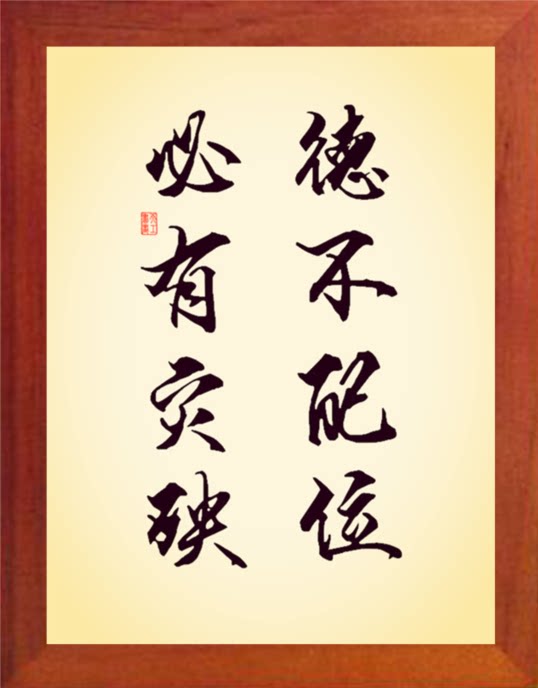 德不配位
必有灾殃